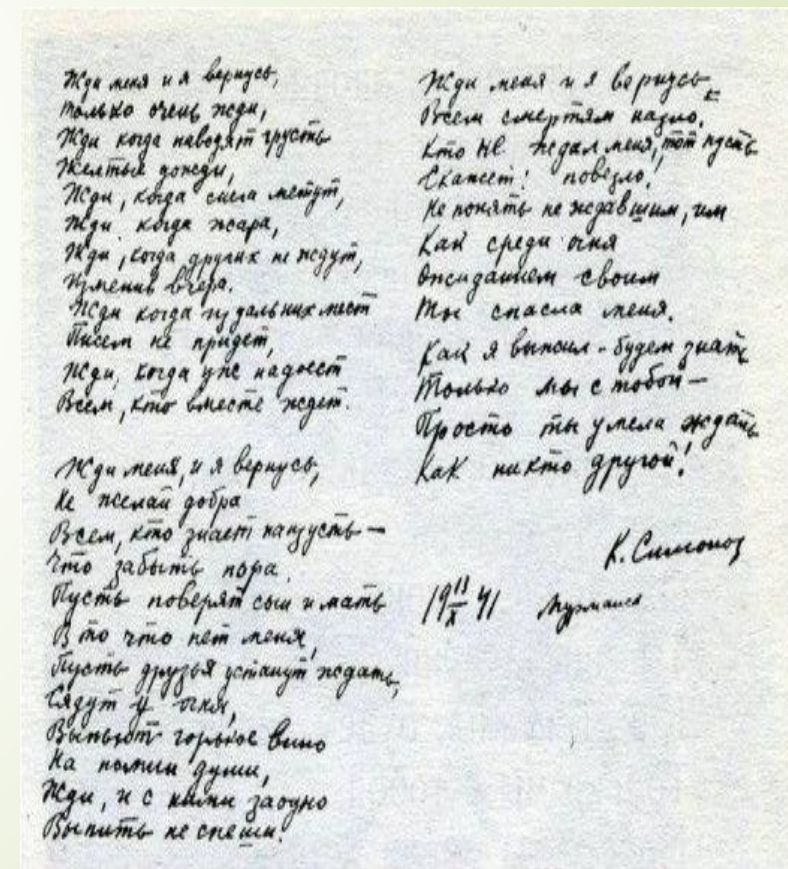 Жди меня и я вернусь,
только очень жди,
Жди когда наводят грусть
Желтые дожди,
Жди, когда снега метут,
Жди когда жара,
Жди, когда других не ждут,
Изменив вчера.
Жди когда из дальних мест
Писем не придет,
Жди, когда уже надоест
Всем, кто вместе ждет.

Жди меня, и я вернусь,
Не желай добра
Всем, кто знает наизусть —
Что забыть пора.
Пусть поверят сын и мать
В то что нет меня,
Пусть друзья устанут ждать,
Сядут у огня,
Выпьют горькое вино
На помин души,
Жди, и с ними заодно
Выпить не спеши.

Жди меня и я вернусь
Всем смертям назло.
Кто не ждал меня, тот пусть
Скажет: повезло!
Не понять не ждавшим, им
Как среди огня
Ожиданием своим
Ты спасла меня.
Как я выжил - будем знать
Только мы с тобой —
Просто ты умела ждать
Как никто другой!

К. Симонов
19 11/X 41 Мурманск